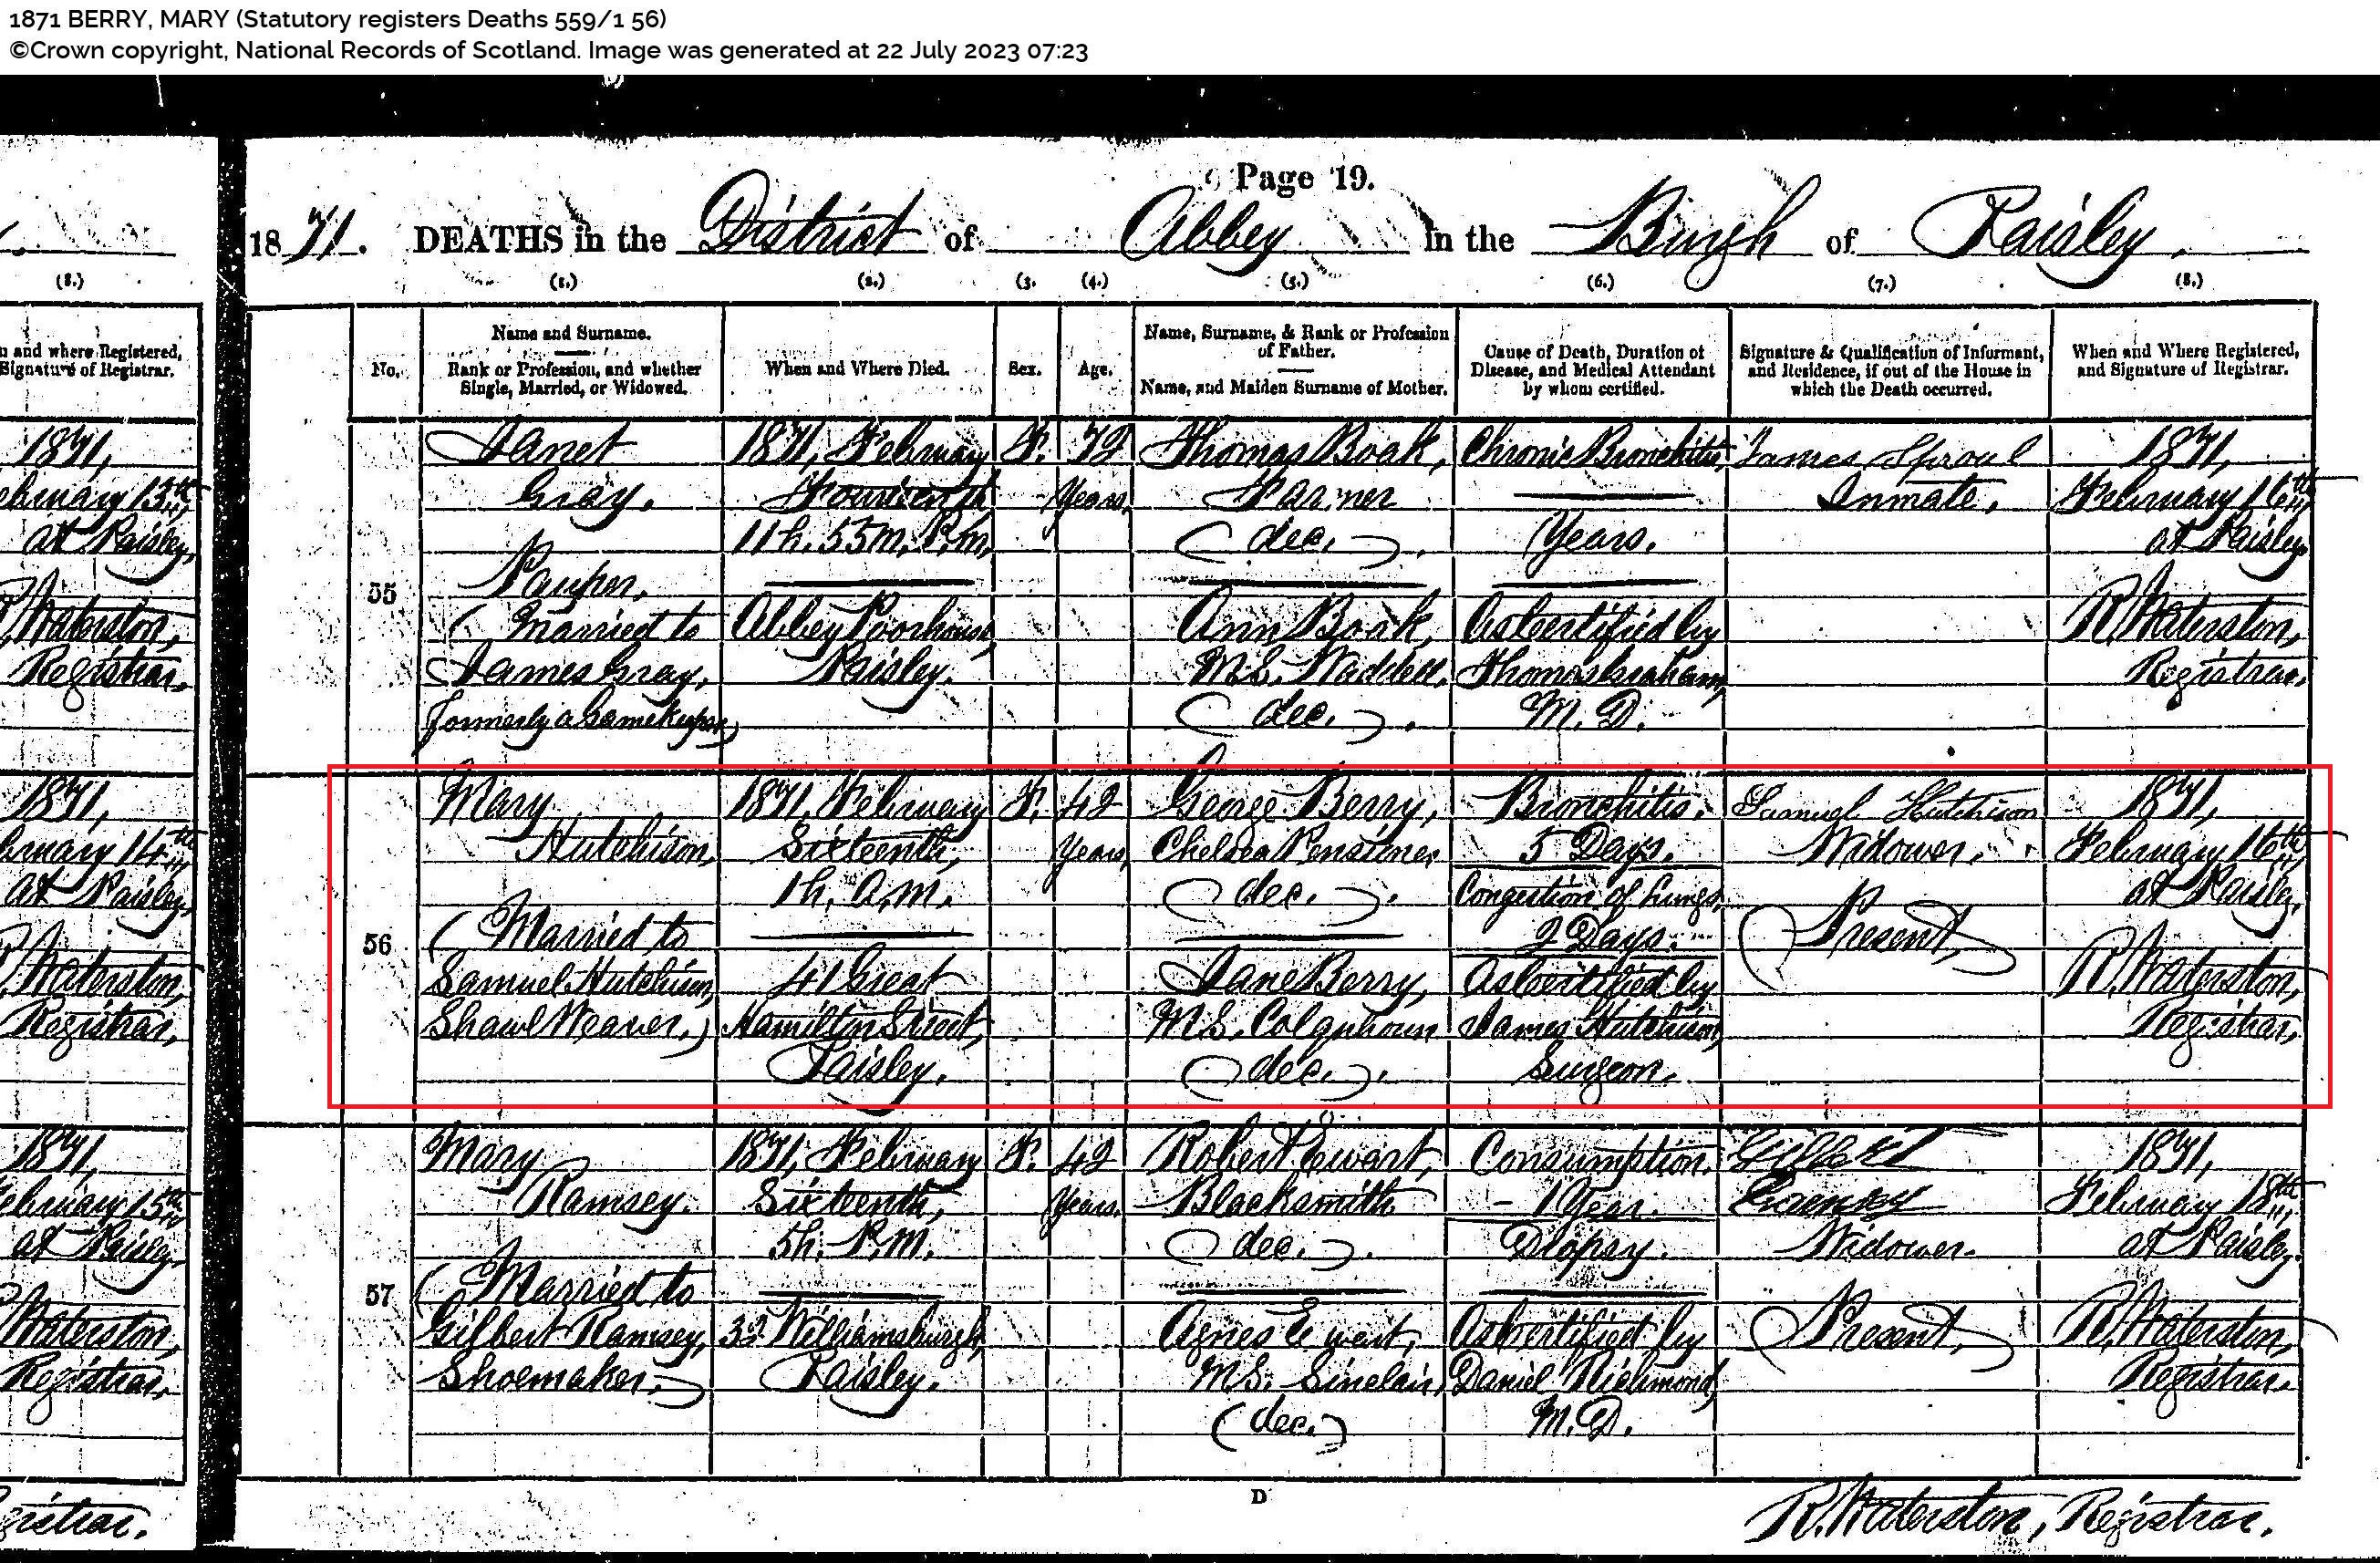 1871 BERRY, MARY (Statutory registers Deaths 559/1 56)
©Crown copyright, National Records of Scotland. Image was generated at 22 July 2023 07:23
Page 19.
1871. DEATHS in the District of Abbey in the Burgh of Paisley.
(8.)
(1.) (2.) (3. (4.) (5.) (6.) (7.) (8.)
n and where Registered,
Signature of Registrar.
No.
Name and Surname.
Rank or Profession, and whether
Single, Married, or Widowed.
When and Where Died.
Sex.
Age.
Name, Surname, & Rank or Profession
of Father.
Name, and Maiden Surname of Mother.
Cause of Death, Duration of
Disease, and Medical Attendant
by whom certified.
Signature & Qualification of Informant,
and Residence, if out of the House in
which the Death occurred.
When and Where Registered,
and Signature of Registrar.
1871,
ebruary 13th
at Paisley,
R. Waterston,
Registrar.
55
Janet
Gray.
Pauper.
(Married to
James Gray,
formerly a Gamekeeper)
1871, February
Fourteenth
11h. 55m. P.M.
Abbey Poorhouse,
Paisley.
F.
72
Years.
Thomas Boak,
Farmer
(dec.).
Ann Boak,
M.S. Waddell.
(dec.).
Chronic Bronchitis,
Years.
As Certified by
Thomas Graham,
M.D.
James Sproul
Inmate.
1871,
February 16th
at Paisley.
R. Waterston,
Registrar.
1871,
bruary 14th
at Paisley,
R. Waterston,
Registrar.
56
Mary
Hutchison,
(Married to
Samuel Hutchison,
Shawl Weaver.)
1871, February
Sixteenth,
1h. A.M.
41 Great
Hamilton Street,
Paisley.
F.
42
Years,
George Berry,
Chelsea Pensioner
(dec.).
Jane Berry,
M.S. Colquhoun
(dec.).
Bronchitis.
5 Days.
Congestion of Lungs,
2 Days.
As Certified by
James Hutchison,
Surgeon.
Samuel Hutchison
Widower.
(Present)
1871,
February 16th
at Paisley,
R. Waterston,
Registrar.
1871,
ebruary 15th
at Paisley
R. Waterston,
Registrar.
57
Mary
Ramsey.
(Married to
Gilbert Ramsey,
Shoemaker.)
1871, February
Sixteenth,
5h. P.M.
32 Williamsburgh,
Paisley.
F.
42
Years.
Robert Ewart,
Blacksmith
(dec.).
Agnes Ewart,
M.S. Sinclair,
(dec.)
Consumption.
- 1 Year.
Dropsy.
As Certified by
Daniel Richmond,
M.D.
Gilbert
Widower.
(Present,)
1871,
February 18th
at Paisley.
R. Waterston,
Registrar.
gistrar.
D
R. Waterston, Registrar.